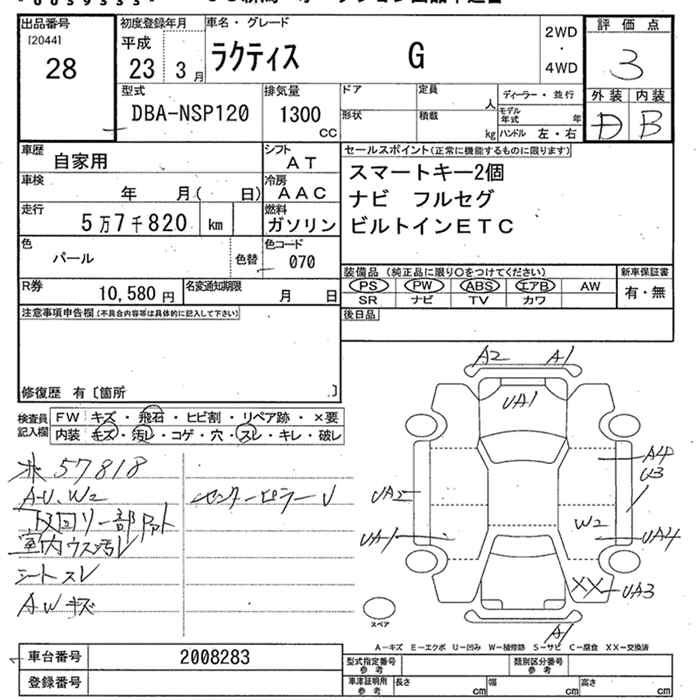 出品番号 初度登録年月 車名・グレード 2WD・4WD 評価点
[2044]
28 平成 23 3月 ラクティス G 3
型式 排気量 ドア 定員 人 ディーラー・並行 外装 内装
DBA-NSP120 1300 CC 形状 積載 kg モデル年式 年 D B
ハンドル 左・右
車歴 自家用 シフト AT セールスポイント(正常に機能するものに限ります)
車検 年 月( 日) 冷房 AAC スマートキー2個
走行 5万7千820 km 燃料 ガソリン ナビ フルセグ
ビルトインETC
色 パール 色替 色コード 070
装備品(純正品に限り○をつけてください) 新車保証書
R券 10,580円 名変通知期限 月 日 PS PW ABS エアB AW 有・無
SR ナビ TV カワ
注意事項申告欄(不具合内容等は具体的に記入して下さい) 後日品
修復歴 有〔箇所 〕
A2 A1
UA1
検査員記入欄 FW キズ・飛石・ヒビ割・リペア跡・×要
内装 キズ・汚レ・コゲ・穴・スレ・キレ・破レ
A4
U3
米57818
A・U、W2 センターピラーU UA2
W2
下回リ一部 UA1 UA4
室内ウス汚レ
シートスレ XX UA3
AWキズ
スペア
A1
A-キズ E-エクボ U-凹み W-補修跡 S-サビ C-腐食 XX-交換済
車台番号 2008283 型式指定番号 参考 類別区分番号 参考
登録番号 車津証明用 参考 長さ cm 幅 cm 高さ cm